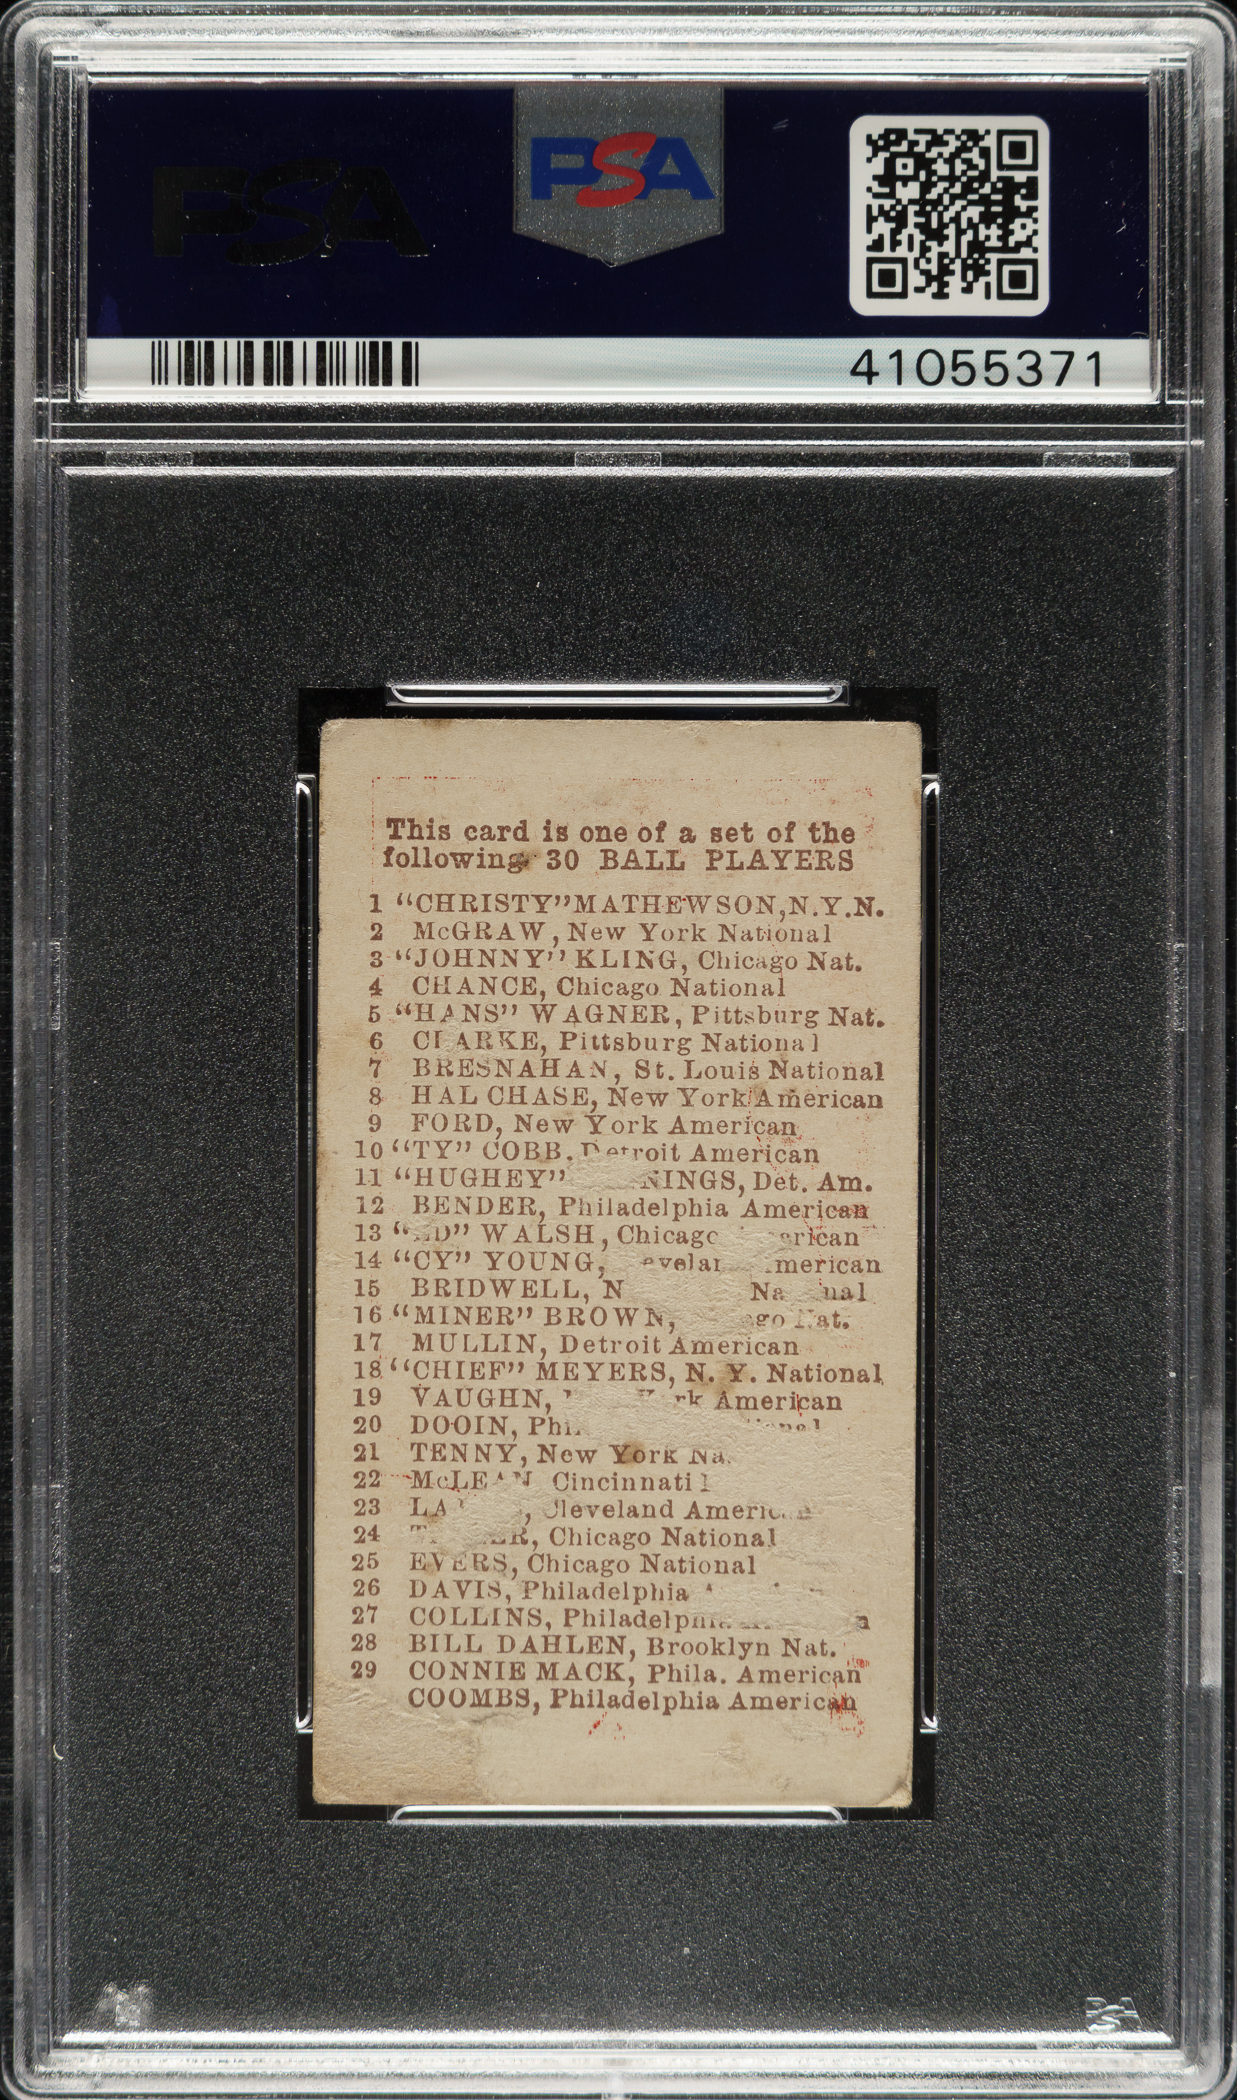 PSA
PSA
41055371
This card is one of a set of the
following 30 BALL PLAYERS
1 "CHRISTY" MATHEWSON, N.Y.N.
2 McGRAW, New York National
3 "JOHNNY" KLING, Chicago Nat.
4 CHANCE, Chicago National
5 "HANS" WAGNER, Pittsburg Nat.
6 CLARKE, Pittsburg National
7 BRESNAHAN, St. Louis National
8 HAL CHASE, New York American
9 FORD, New York American
10 "TY" COBB, Detroit American
11 "HUGHEY" NINGS, Det. Am.
12 BENDER, Philadelphia American
13 "ED" WALSH, Chicago erican
14 "CY" YOUNG, evelan merican
15 BRIDWELL, N Na nal
16 "MINER" BROWN, ago Nat.
17 MULLIN, Detroit American
18 "CHIEF" MEYERS, N. Y. National
19 VAUGHN, rk American
20 DOOIN, Phi
21 TENNY, New York Na
22 McLEAN Cincinnati
23 LA , Cleveland Americ
24 T ER, Chicago National
25 EVERS, Chicago National
26 DAVIS, Philadelphia
27 COLLINS, Philadelphia
28 BILL DAHLEN, Brooklyn Nat.
29 CONNIE MACK, Phila. American
COOMBS, Philadelphia American
PSA